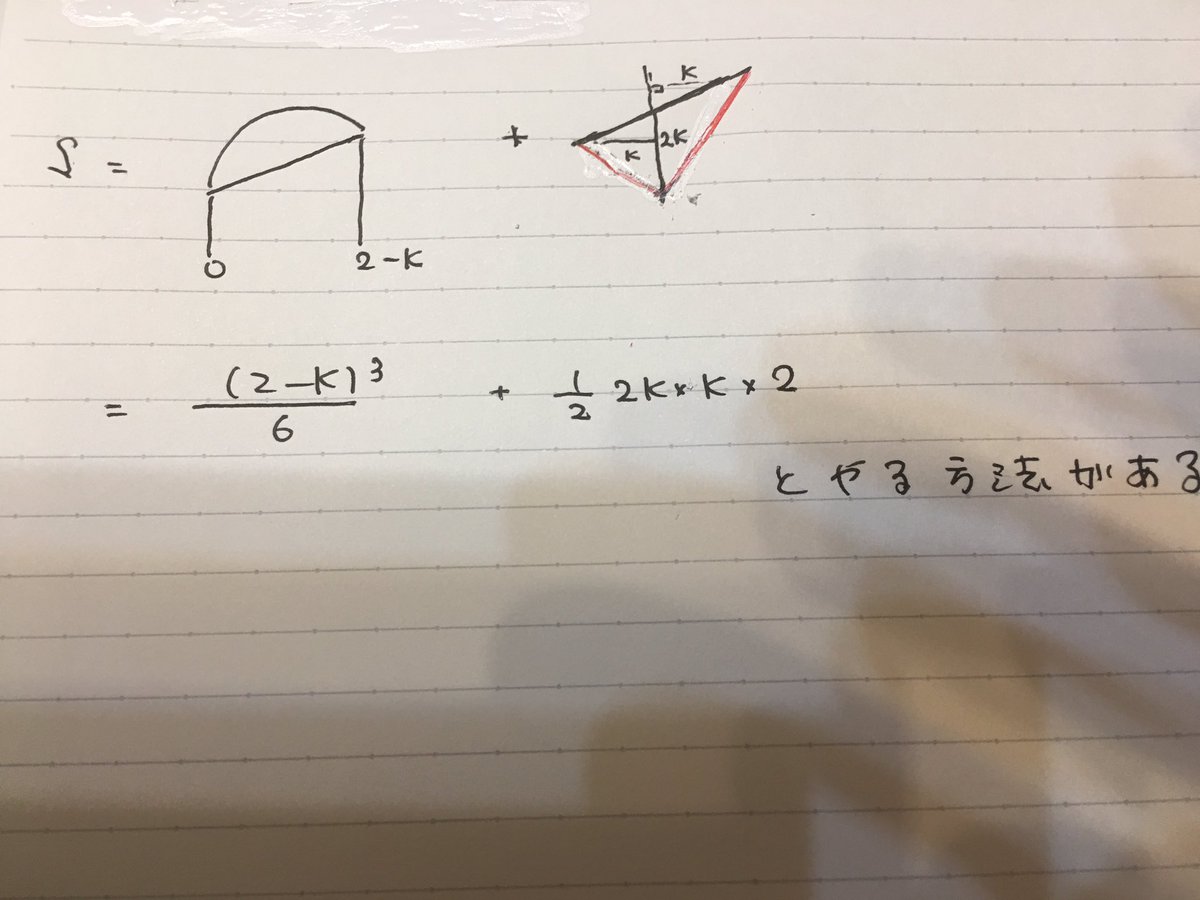 S = 0 2-K + K K 2K
= (2-K)³/6 + 1/2 2K×K×2
とやる方法がある